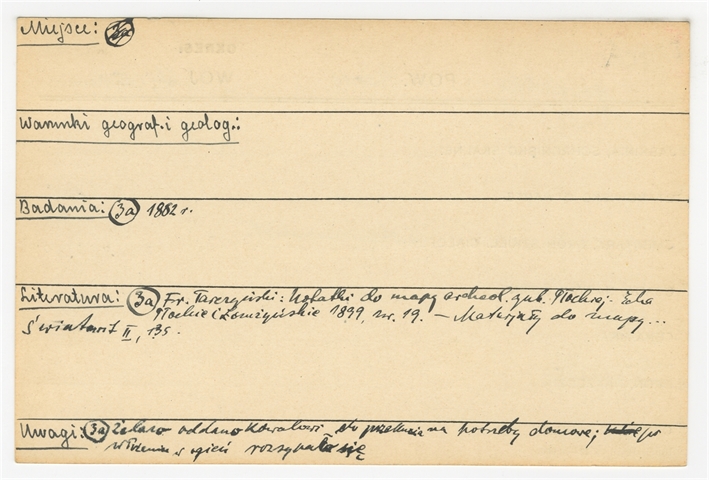 Miejsce: 3a
Warunki geograf. i geolog.:
Badania: 3a 1882 r.
Literatura: 3a Fr. Tarczyński: Notatki do mapy archeol. gub. Płockiej. Echa
Płockie i Łomżyńskie 1899, nr. 19. – Materjały do mapy...
Światowit II, 135.
Uwagi: 3a Żelazo oddano kowalowi do przekucia na potrzeby domowe; po
włożeniu w ogień rozsypało się